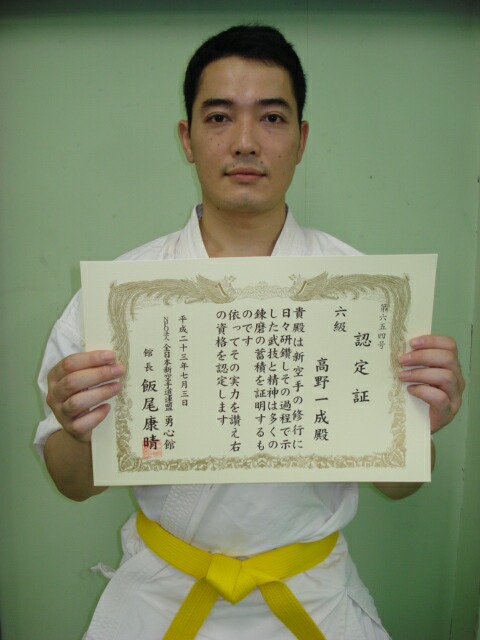 第六五四号
認定証
六級
高野一成殿
貴殿は新空手の修行に
日々研鑽しその過程で示
した武技と精神は多くの
錬磨の蓄積を証明するも
のです
依ってその実力を讃え右
の資格を認定します
平成二十三年七月三日
NPO法人 全日本新空手道連盟 勇心館
館長 飯尾康晴